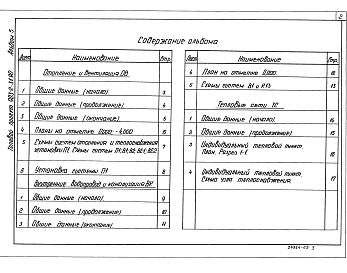 2
Альбом 5
Типовой проект
Содержание альбома
Лист Наименование Стр.
Отопление и вентиляция ОВ
1 Общие данные (начало) 3
2 Общие данные (продолжение) 4
3 Общие данные (окончание) 5
4 Планы на отметке 0,000; -4,000 6
5 Схемы систем отопления и теплоснабжения
установки П1. Схемы систем 7
6 Установка системы П1 8
Внутренние водопровод и канализация ВК
1 Общие данные (начало) 9
2 Общие данные (продолжение) 10
3 Общие данные (окончание) 11
Лист Наименование Стр.
4 План на отметке 0,000
5 Схемы систем В1 и К13
Тепловые сети ТС
1 Общие данные (начало) 14
2 Общие данные (продолжение) 15
3 Индивидуальный тепловой пункт.
План. Разрез 1-1. 16
4 Индивидуальный тепловой пункт.
Схема узла теплоснабжения. 17